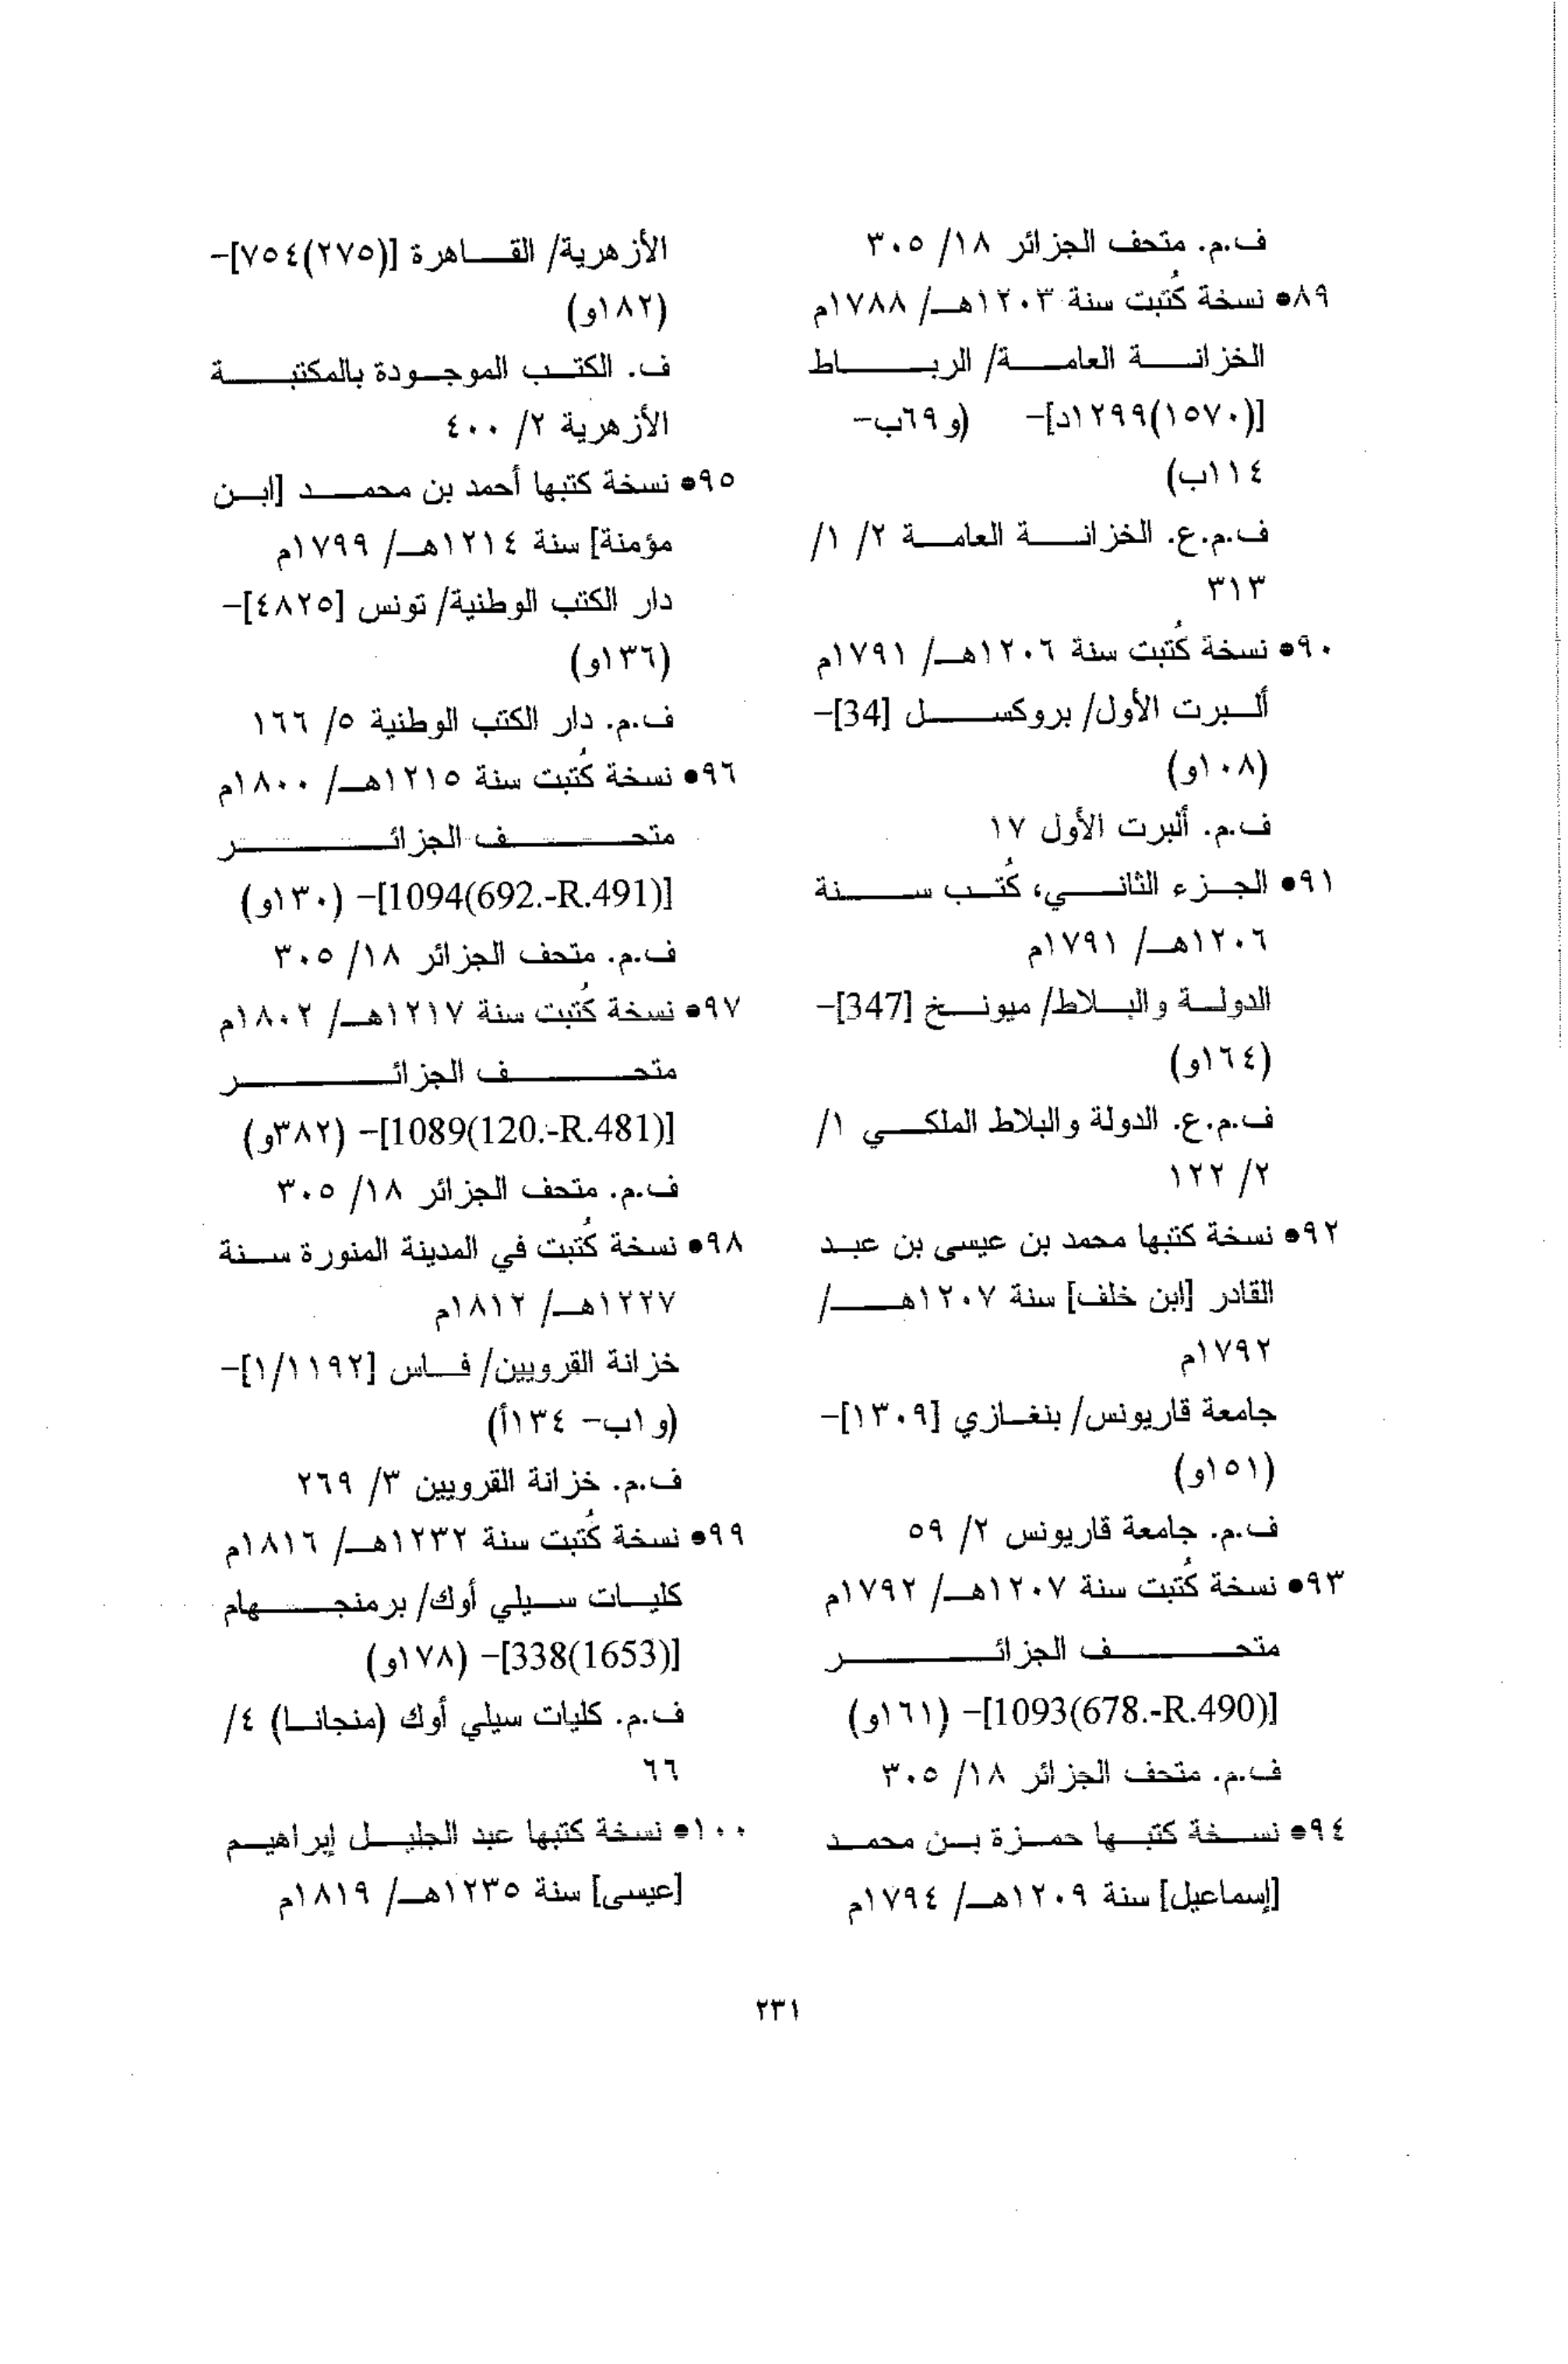 ف.م. متحف الجزائر ١٨/ ٣٠٥
٨٩• نسخة كُتبت سنة ١٢٠٣هـ/ ١٧٨٨م
الخزانة العامة/ الرباط
[(١٥٧٠)١٢٩٩د]- (و٦٩ب-
١١٤ب)
ف.م.ع. الخزانة العامة ٢/ ١/
٣١٣
٩٠• نسخة كُتبت سنة ١٢٠٦هـ/ ١٧٩١م
ألبرت الأول/ بروكسل [34]-
(١٠٨و)
ف.م. ألبرت الأول ١٧
٩١• الجزء الثاني، كُتب سنة
١٢٠٦هـ/ ١٧٩١م
الدولة والبلاط/ ميونخ [347]-
(١٦٤و)
ف.م.ع. الدولة والبلاط الملكي ١/
٢/ ١٢٢
٩٢• نسخة كتبها محمد بن عيسى بن عبد
القادر [ابن خلف] سنة ١٢٠٧هـ/
١٧٩٢م
جامعة قاريونس/ بنغازي [١٣٠٩]-
(١٥١و)
ف.م. جامعة قاريونس ٢/ ٥٩
٩٣• نسخة كُتبت سنة ١٢٠٧هـ/ ١٧٩٢م
متحف الجزائر
[1093(678.-R.490)]- (١٦١و)
ف.م. متحف الجزائر ١٨/ ٣٠٥
٩٤• نسخة كتبها حمزة بن محمد
[إسماعيل] سنة ١٢٠٩هـ/ ١٧٩٤م
الأزهرية/ القاهرة [(٢٧٥)٧٥٤]-
(١٨٢و)
ف. الكتب الموجودة بالمكتبة
الأزهرية ٢/ ٤٠٠
٩٥• نسخة كتبها أحمد بن محمد [ابن
مؤمنة] سنة ١٢١٤هـ/ ١٧٩٩م
دار الكتب الوطنية/ تونس [٤٨٢٥]-
(١٣٦و)
ف.م. دار الكتب الوطنية ٥/ ١٦٦
٩٦• نسخة كُتبت سنة ١٢١٥هـ/ ١٨٠٠م
متحف الجزائر
[1094(692.-R.491)]- (١٣٠و)
ف.م. متحف الجزائر ١٨/ ٣٠٥
٩٧• نسخة كُتبت سنة ١٢١٧هـ/ ١٨٠٢م
متحف الجزائر
[1089(120.-R.481)]- (٣٨٢و)
ف.م. متحف الجزائر ١٨/ ٣٠٥
٩٨• نسخة كُتبت في المدينة المنورة سنة
١٢٢٧هـ/ ١٨١٢م
خزانة القرويين/ فاس [١/١١٩٢]-
(و١ب- ١٣٤أ)
ف.م. خزانة القرويين ٣/ ٢٦٩
٩٩• نسخة كُتبت سنة ١٢٣٢هـ/ ١٨١٦م
كليات سيلي أوك/ برمنجهام
[338(1653)]- (١٧٨و)
ف.م. كليات سيلي أوك (منجانا) ٤/
٦٦
١٠٠• نسخة كتبها عبد الجليل إبراهيم
[عيسى] سنة ١٢٣٥هـ/ ١٨١٩م
٢٣١